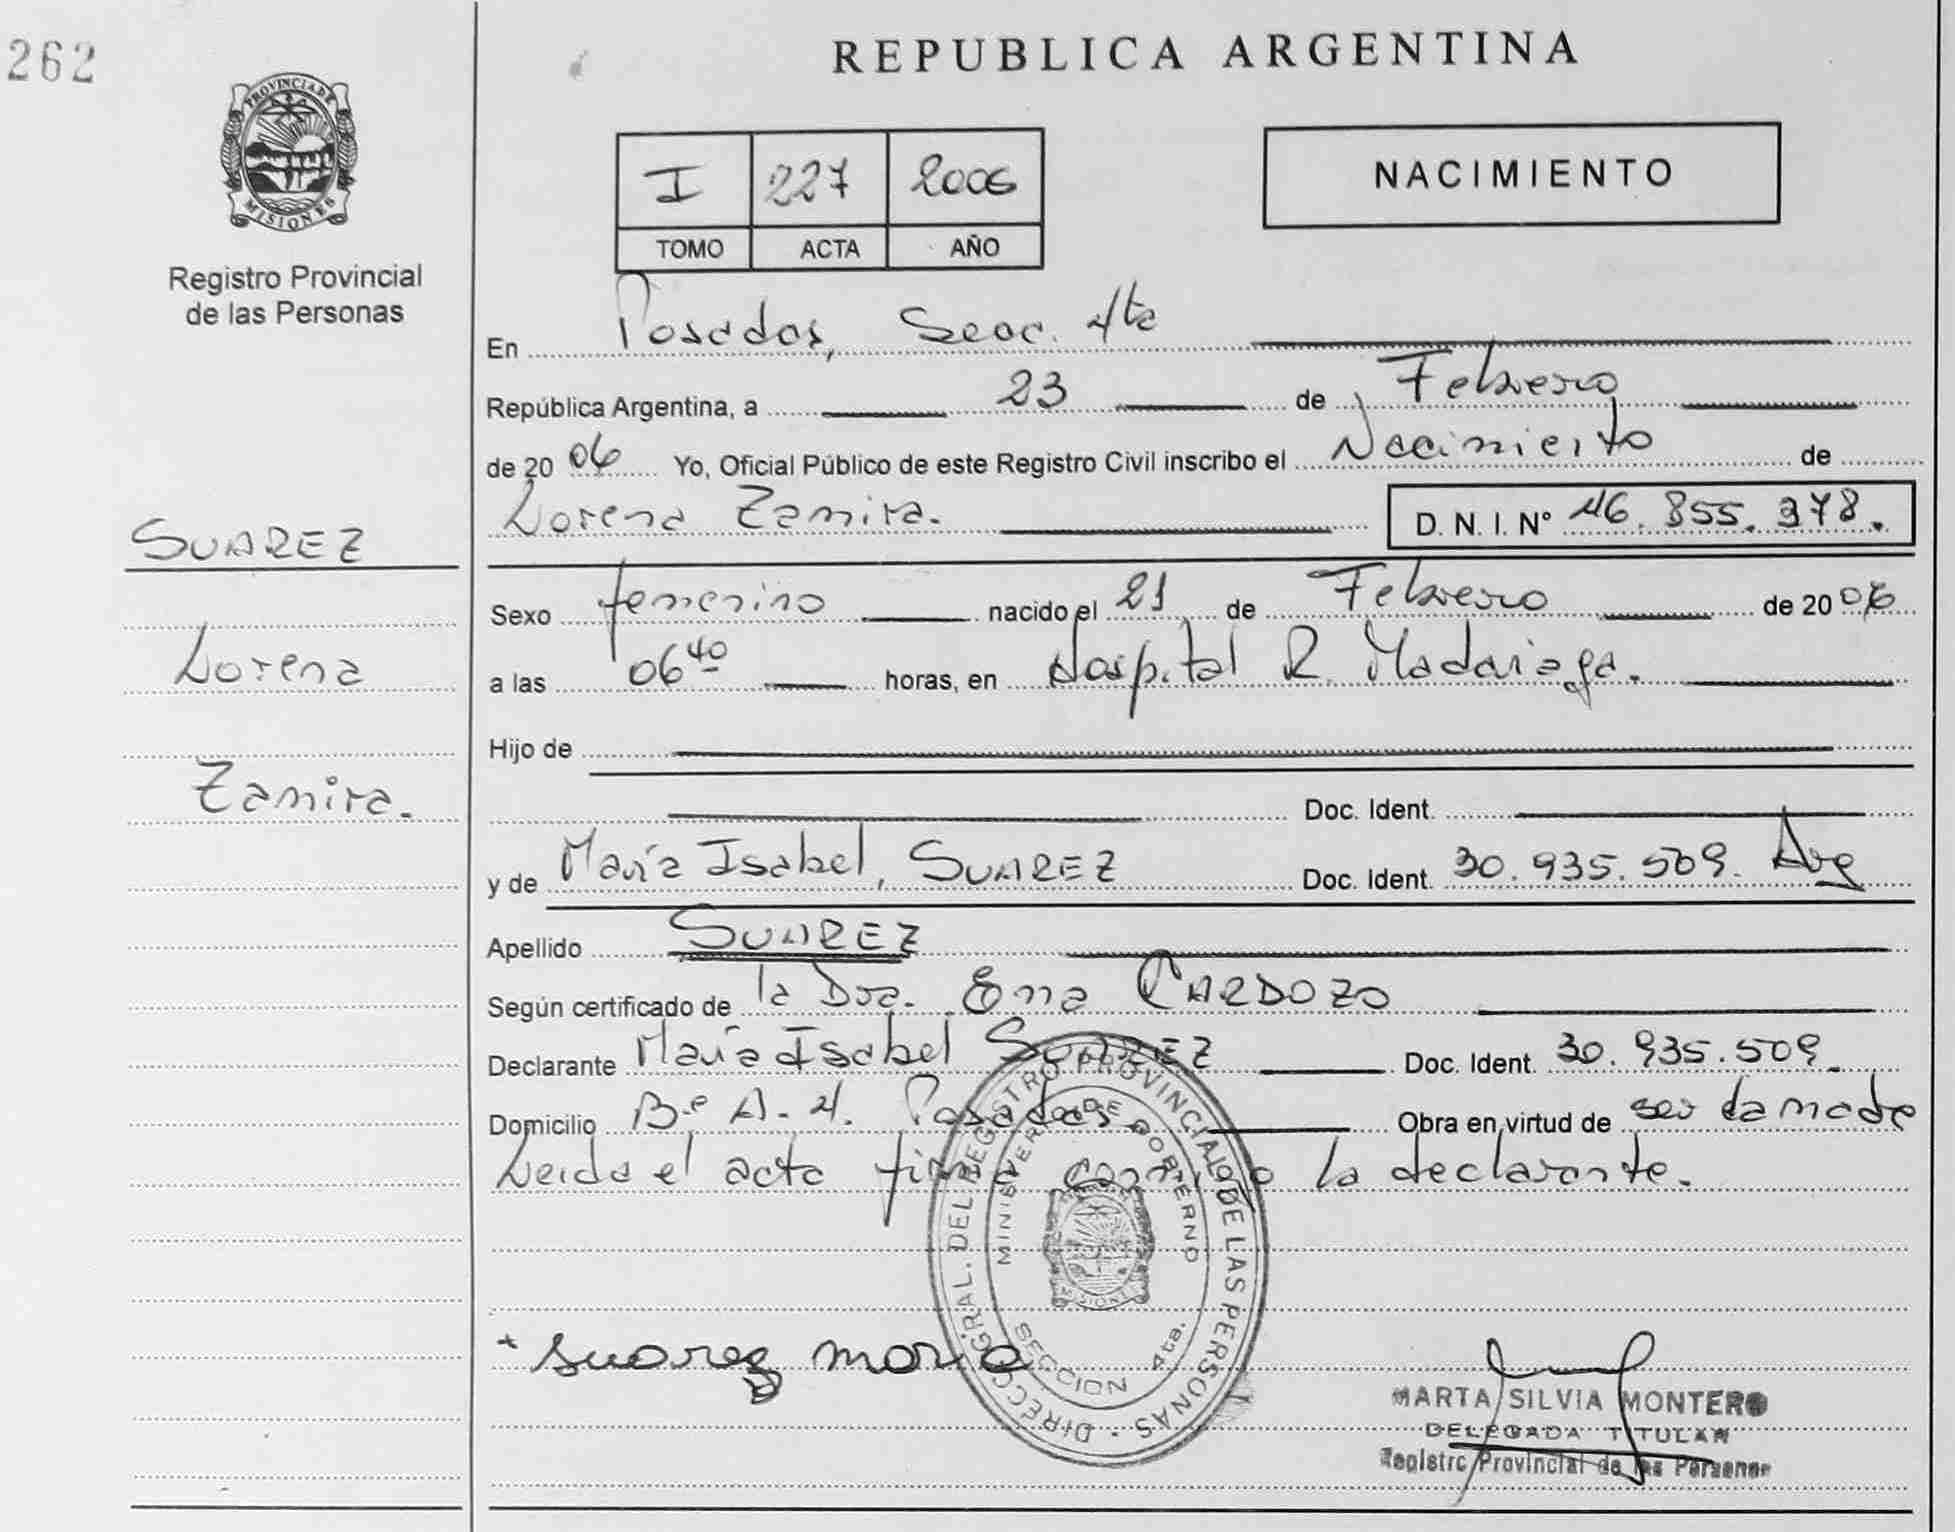 262
REPUBLICA ARGENTINA
PROVINCIA DE
MISIONES
Registro Provincial
de las Personas
I 227 2006
TOMO ACTA AÑO
NACIMIENTO
En Posadas, Secc. 4ta
República Argentina, a 23 de Febrero
de 2006 Yo, Oficial Público de este Registro Civil inscribo el Nacimiento de
Lorena Zamira. D. N. I. Nº 46.855.378.
SUAREZ
Lorena
Zamira.
Sexo femenino nacido el 21 de Febrero de 2006
a las 06 40 horas, en Hospital R. Madariaga.
Hijo de
Doc. Ident.
y de María Isabel, SUAREZ Doc. Ident. 30.935.509. Arg
Apellido SUAREZ
Según certificado de la Dra. Ema CARDOZO
Declarante María Isabel SUAREZ Doc. Ident. 30.935.509.
Domicilio Bº A-4. Posadas Obra en virtud de ser la madre
Leida el acta firma conmigo la declarante.
DIRECC. GRAL. DEL REGISTRO PROVINCIAL DE LAS PERSONAS
MINISTERIO DE GOBIERNO
MISIONES
SECCION 4ta.
Suarez maria
MARTA SILVIA MONTERO
DELEGADA TITULAR
Registro Provincial de las Personas